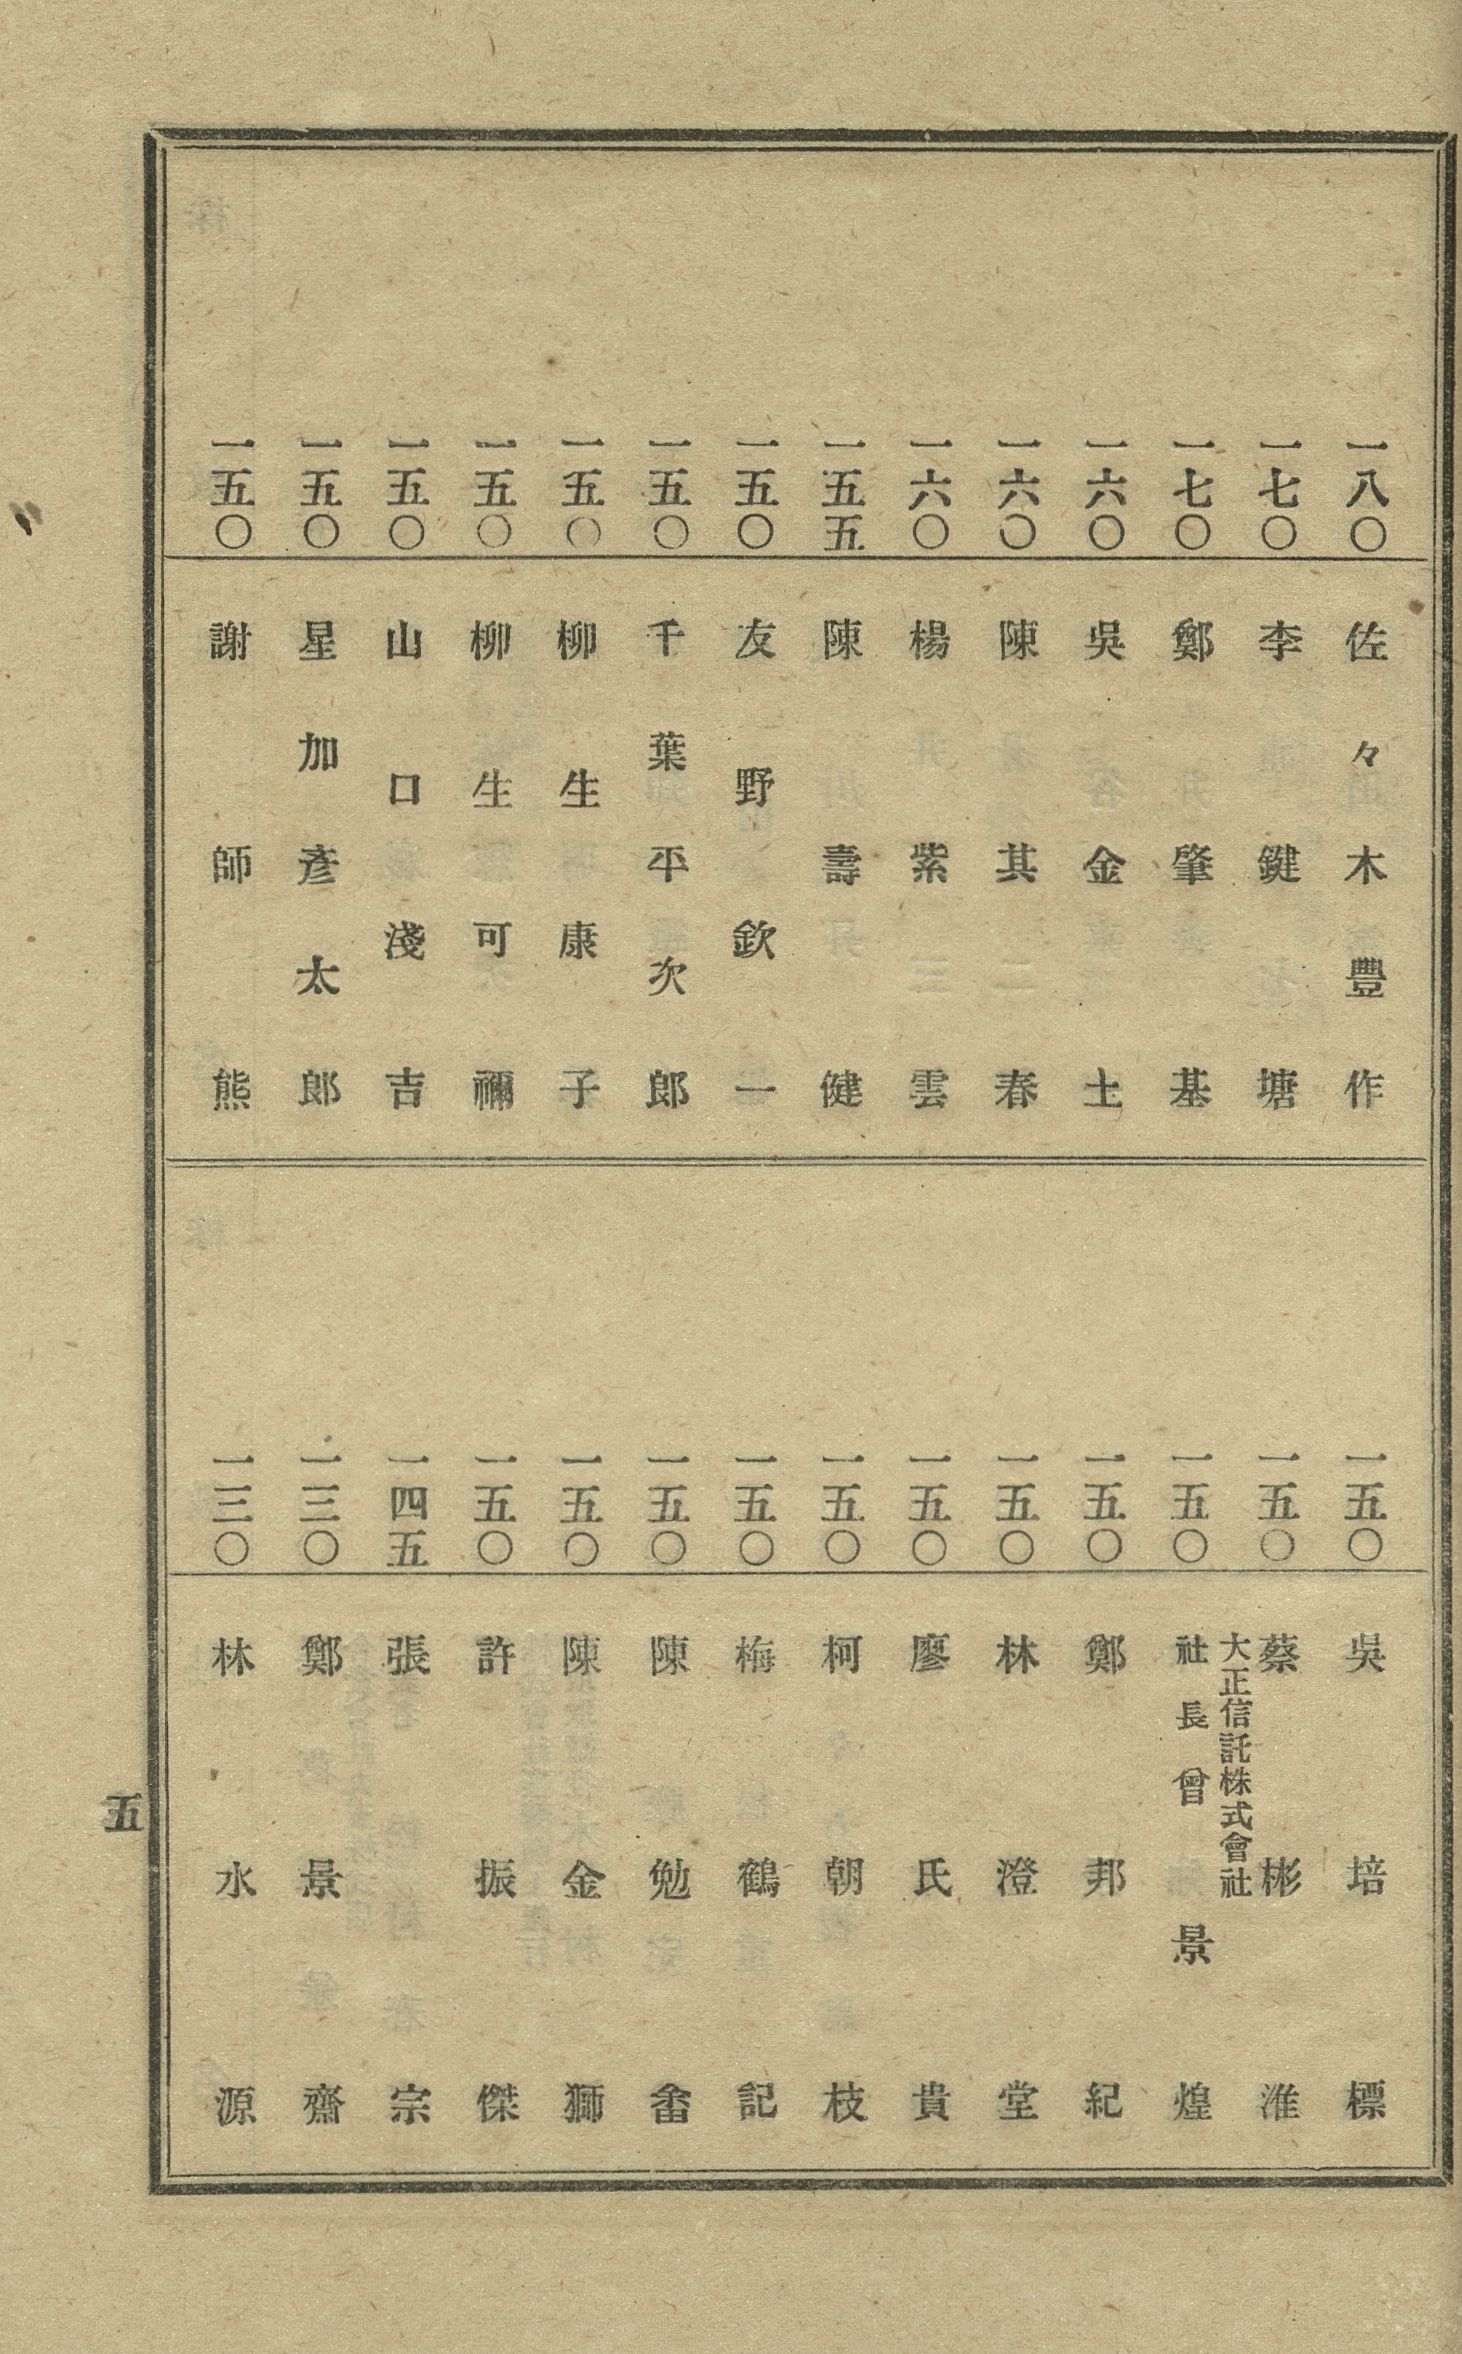 一八〇 佐々木豐作
一七〇 李鍵塘
一七〇 鄭肇基
一六〇 吳金土
一六〇 陳其春
一六〇 楊紫雲
一五五 陳壽健
一五〇 友野欽一
一五〇 千葉平次郎
一五〇 柳生康子
一五〇 柳生可禰
一五〇 山口淺吉
一五〇 星加彥太郎
一五〇 謝師熊
一五〇 吳培標
一五〇 蔡彬淮
大正信託株式會社
一五〇 社長曾景煌
一五〇 鄭邦紀
一五〇 林澄堂
一五〇 廖氏貴
一五〇 柯朝枝
一五〇 梅鶴記
一五〇 陳勉畬
一五〇 陳金獅
一五〇 許振傑
一四五 張宗
一三〇 鄭景齋
一三〇 林水源
五